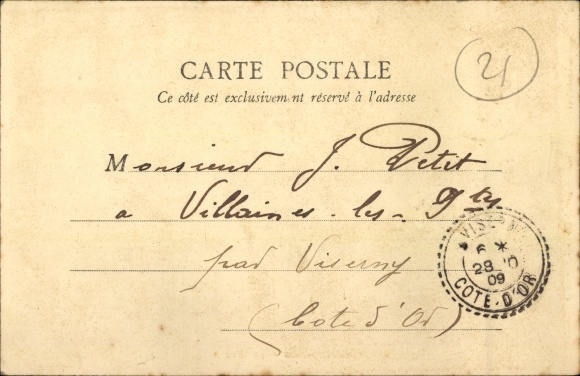 21
CARTE POSTALE
Ce côté est exclusivement réservé à l'adresse
Monsieur J. Petit
a Villaines-les-Ptes
par Viserny
(Cote d'Or)
6 *
28
09
COTE-D'OR